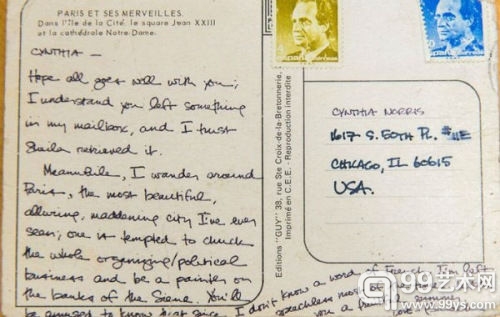 PARIS ET SES MERVEILLES
Dans l'Île de la Cité, le square Jean XXIII
et la cathédrale Notre-Dame.
CYNTHIA —
Hope all goes well with you;
I understand you left something
in my mailbox, and I trust
retrieved it.
Meanwhile, I wander around
Paris, the most beautiful,
alluring, maddening city I've ever
seen; one is tempted to chuck
the whole organizing/political
business and be a painter on
the banks of the Siene. You'll
be amused to know that since I don't know a word of French, I'm left
speechless most of the
Editions "GUY" 38, rue Ste Croix-de-la-Bretonnerie,
Imprimé en C.E.E. - Reproduction interdite
CYNTHIA NORRIS
1617 S. 50TH PL. #11E
CHICAGO, IL 60615
USA.
99艺术网
99ys.com